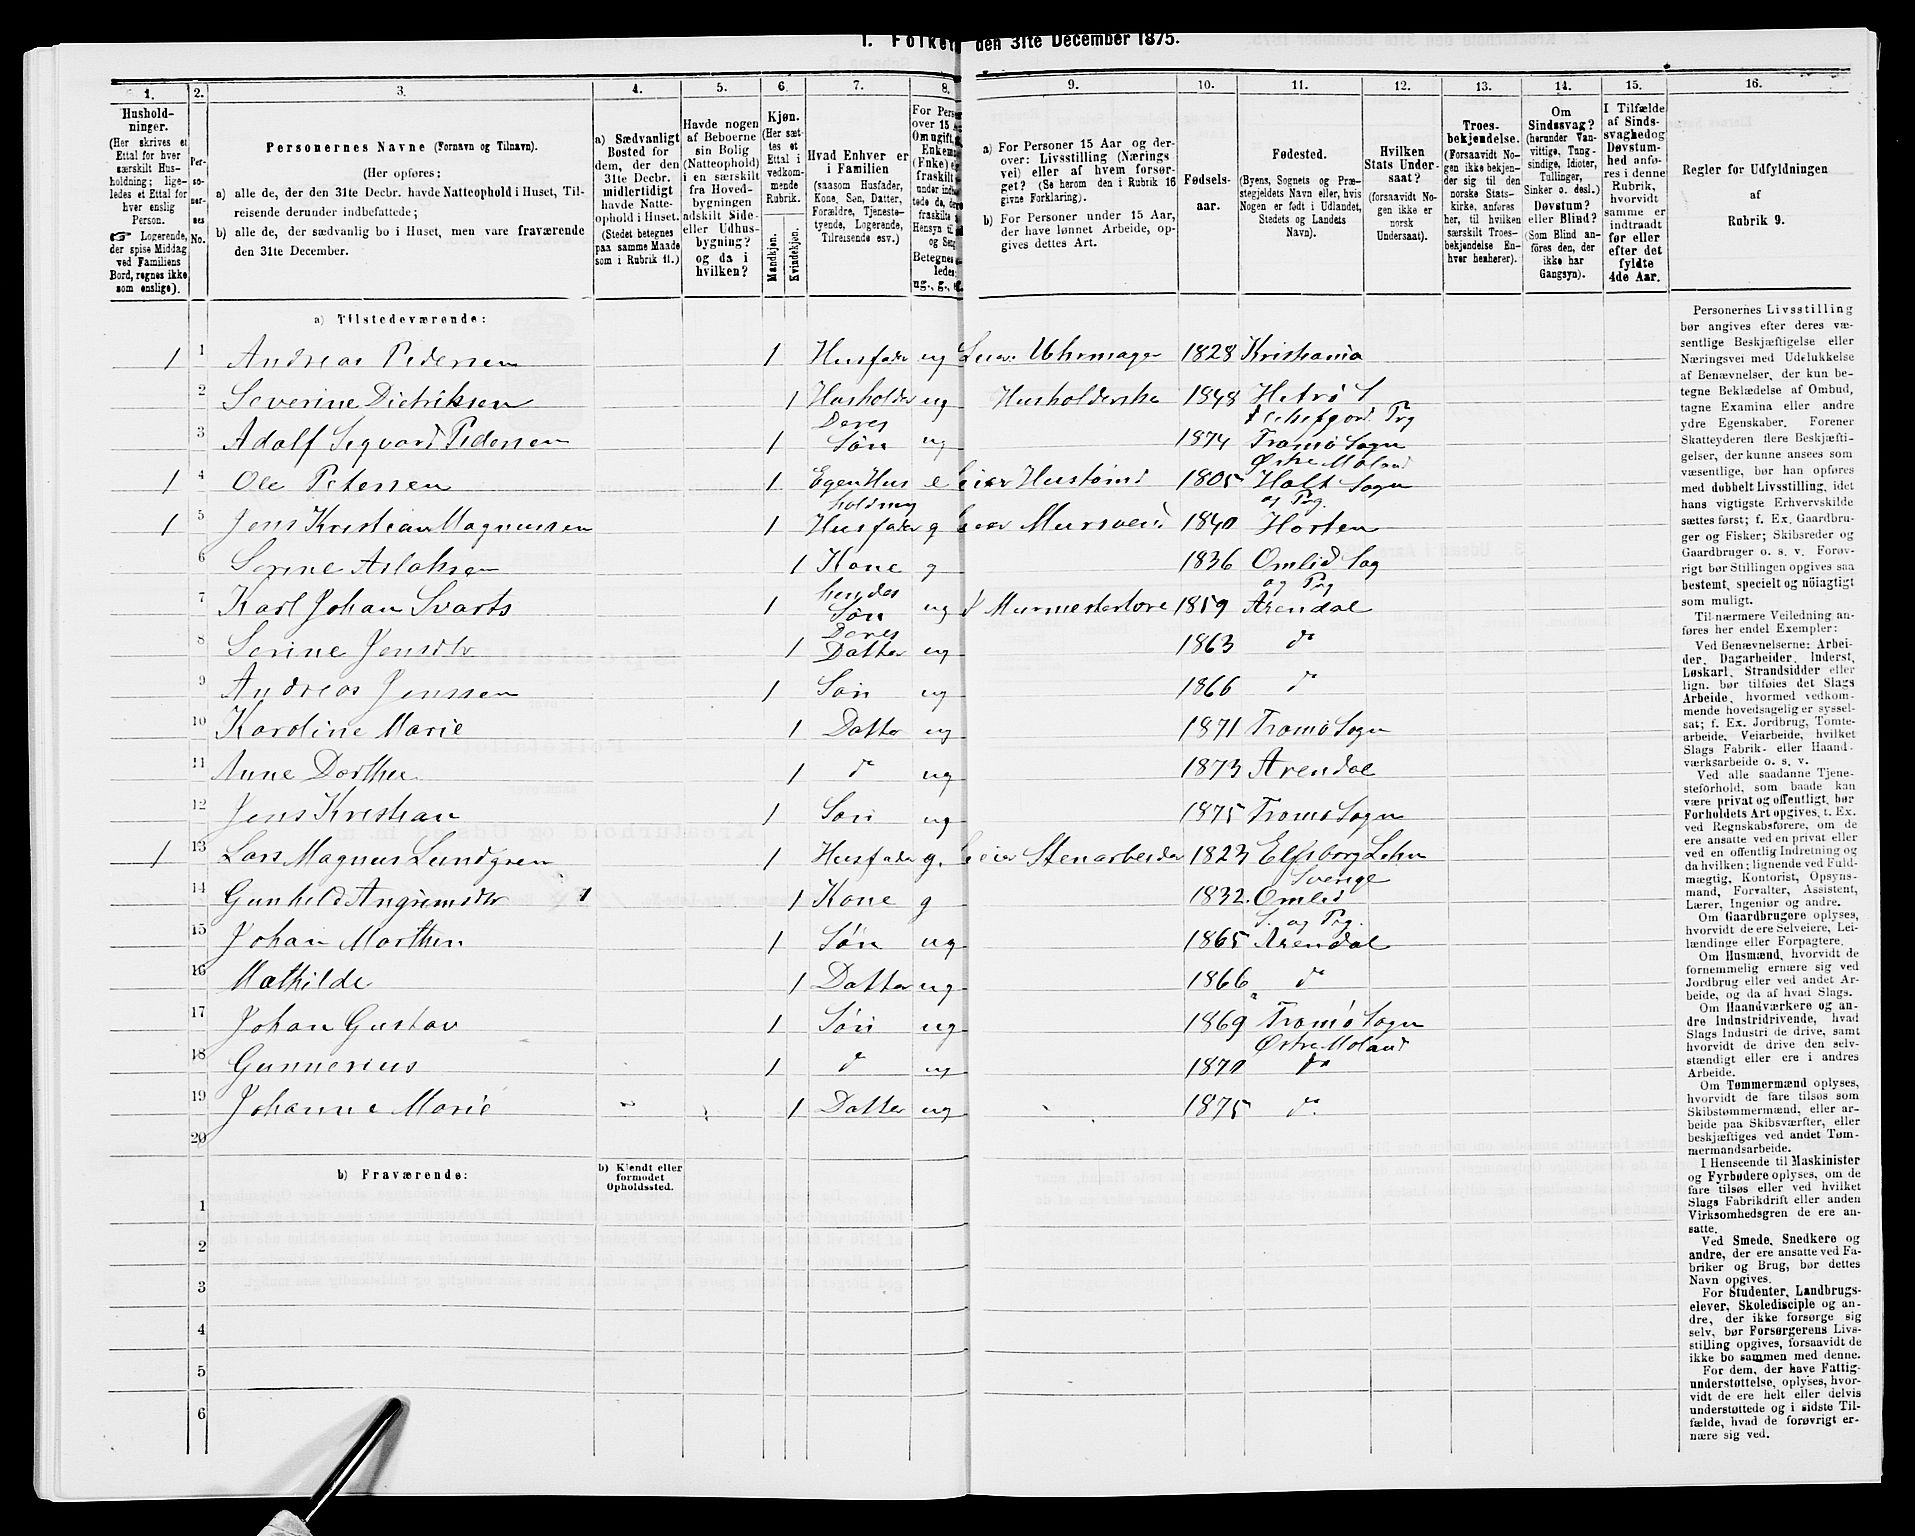 1. Folket den 31te December 1875.
1. 2. 3. 4. 5. 6. 7. 8. 9. 10. 11. 12. 13. 14. 15. 16.
Hushold-
ninger.
(Her skrives et
Ettal for hver
særskilt Hus-
holdning; lige-
ledes et Ettal for
hver enslig
Person.
☞ Logerende,
der spise Middag
ved Familiens
Bord, regnes ikke
som enslige).
Per-
so-
ner-
nes
No.
Personernes Navne (Fornavn og Tilnavn).
(Her opføres:
a) alle de, der den 31te Decbr. havde Natteophold i Huset, Til-
reisende derunder indbefattede;
b) alle de, der sædvanlig bo i Huset, men vare fraværende
den 31te December.
a) Sædvanligt
Bosted for
dem, der den
31te Decbr.
midlertidigt
havde Natte-
ophold i Huset.
(Stedet betegnes
paa samme Maade
som i Rubrik 11.)
Havde nogen
af Beboerne
sin Bolig
(Natteophold)
i en særskilt
fra Hoved-
bygningen
adskilt Side-
eller Udhus-
bygning?
og da i
hvilken?
Kjøn.
(Her sæt-
tes et
Ettal i
vedkom-
mende
Rubrik.
Mandkjøn.
Kvindekjøn.
Hvad Enhver er
i Familien
(saasom Husfader,
Kone, Søn, Datter,
Forældre, Tjeneste-
tyende, Logerende,
Tilreisende osv.)
For Pers
over 15 A
Om ugift
Enkem
(Fnke) e
fraskilt
under ind
tede da, de
fraskilte
Hensyn til
og Sen
Betegnes
ledes
ug., g., e
a) For Personer 15 Aar og der-
over: Livsstilling (Nærings
vei) eller af hvem forsør-
get? (Se herom den i Rubrik 16
givne Forklaring).
b) For Personer under 15 Aar,
der have lønnet Arbeide, op-
gives dettes Art.
Fødsels-
aar.
Fødested.
(Byens, Sognets og Præ-
stegjeldets Navn eller, hvis
Nogen er født i Udlandet,
Stedets og Landets
Navn).
Hvilken
Stats Under-
saat?
(forsaavidt No-
gen ikke er
norsk
Undersaat).
Troes-
bekjendelse.
(Forsaavidt No-
gen ikke bekjen-
der sig til den
norske Stats-
kirke, anføres
her, til hvilken
særskilt Troes-
bekjendelse En-
hver henhører).
Om
Sindssvag?
(herunder Van-
vittige, Tung-
sindige, Idioter,
Tullinger,
Sinker o. desl.)
Døvstum?
eller Blind?
(Som Blind an-
føres den, der
ikke har
Gangsyn).
I Tilfælde
af Sinds-
svaghedog
Døvstum-
hed anfø-
res i denne
Rubrik,
hvorvidt
samme er
indtraadt
før eller
efter det
fyldte
4de Aar.
Regler for Udfyldningen
af
Rubrik 9.
a) Tilstedeværende:
1 1 Andreas Pedersen 1 Husfader ug Uhrmager 1828 Kristiania
2 Severine Didriksen 1 Husholder ug Husholderske 1848 Hitrø S
Deres Prg
3 Adolf Sigvard Pedersen 1 Søn ug 1874 Tromø Sogn
Østre Moland
1 4 Ole Petersen 1 Egen Hus e Leier Hustømd 1805 Holt Sogn
holdning og Prg.
1 5 Jens Kristian Magnussen 1 Husfader g Leier Mursvend 1840 Horten
6 Serine Aslaksen 1 Kone g 1836 Omlid Sog
hendes og Prg
7 Karl Johan Svarts 1 Søn ug Murmesterlære 1859 Arendal
Deres
8 Serine Jensdtr 1 Datter ug 1863 do
9 Andreas Jenssen 1 Søn ug 1866 do
10 Karoline Marie 1 Datter ug 1871 Tromø Sogn
11 Anne Dorthea 1 do ug 1873 Arendal
12 Jens Kristian 1 Søn ug 1875 Tromø Sogn
1 13 Lars Magnus Lundgren 1 Husfader g. Leier Stenarbeider 1823 Elfsborg Lehn
Sverige
14 Gunhild Angrimsdtr 1 1 Kone g 1832. Omlid
S. og Prg.
15 Johan Marthin 1 Søn ug 1865 Arendal
16 Mathilde 1 Datter ug 1866 do
17 Johan Gustav 1 Søn ug 1869 Tromø Sogn
Østre Moland
18 Gunnerius 1 do ug 1870 do
19 Johanne Marie 1 Datter ug 1875 do
20
b) Fraværende:
b) Kjendt eller
formodet
Opholdssted.
1
2
3
4
5
6
Personernes Livsstilling
bør angives efter deres væ-
sentlige Beskjæftigelse eller
Næringsvei med Udelukkelse
af Benævnelser, der kun be-
tegne Beklædelse af Ombud,
tagne Examina eller andre
ydre Egenskaber. Forener
Skatteyderen flere Beskjæfti-
gelser, der kunne ansees som
væsentlige, bør han opføres
med dobbelt Livsstilling, idet
hans vigtigste Erhvervskilde
sættes først; f. Ex. Gaardbru-
ger og Fisker; Skibsreder og
Gaardbruger o. s. v. Forøv-
rigt bør Stillingen opgives saa
bestemt, specielt og nöiagtigt
som muligt.
Til nærmere Veiledning an-
føres her endel Exempler:
Ved Benævnelserne: Arbei-
der, Dagarbeider, Inderst,
Løskarl, Strandsidder eller
lign. bør tilføies det Slags
Arbeide, hvormed vedkom-
mende hovedsagelig er syssel-
sat; f. Ex. Jordbrug, Tomte-
arbeide, Veiarbeide, hvilket
Slags Fabrik- eller Haand-
værksarbeide o. s. v.
Ved alle saadanne Tjene-
steforhold, som baade kan
være privat og offentligt, bør
Forholdets Art opgives, t. Ex.
ved Regnskabsførere, om de
ere ansatte ved en privat eller
ved en offentlig Indretning og
da hvilken; lignende ved Fuld-
mægtig, Kontorist, Opsyns-
mand, Forvalter, Assistent,
Lærer, Ingeniør og andre.
Om Gaardbrugere oplyses,
hvorvidt de ere Selveiere, Lei-
lændinge eller Forpagtere.
Om Husmænd, hvorvidt de
fornemmelig ernære sig ved
Jordbrug eller ved andet Ar-
beide, og da af hvad Slags.
Om Haandværkere og an-
dre Industridrivende, hvad
Slags Industri de drive, samt
hvorvidt de drive den selv-
stændigt eller ere i andres
Arbeide.
Om Tømmermænd oplyses,
hvorvidt de fare tilsøs som
Skibstømmermænd, eller ar-
beide paa Skibsværfter, eller
beskjæftiges ved andet Tøm-
mermandsarbeide.
I Henseende til Maskinister
og Fyrbødere oplyses, om de
fare tilsøs eller ved hvilket
Slags Fabrikdrift eller anden
Virksomhedsgren de ere an-
satte.
Ved Smede, Snedkere og
andre, der ere ansatte ved Fa-
briker og Brug, bør dettes
Navn opgives.
For Studenter, Landbrugs-
elever, Skoledisciple og an-
dre, der ikke forsørge sig
selv, bør Forsørgerens Livs-
stilling opgives, forsaavidt de
ikke bo sammen med denne.
For dem, der have Fattig-
understøttelse, oplyses, hvor-
vidt de ere helt eller delvis
understøttede og i sidste Til-
fælde, hvad de forøvrigt er-
nære sig ved.